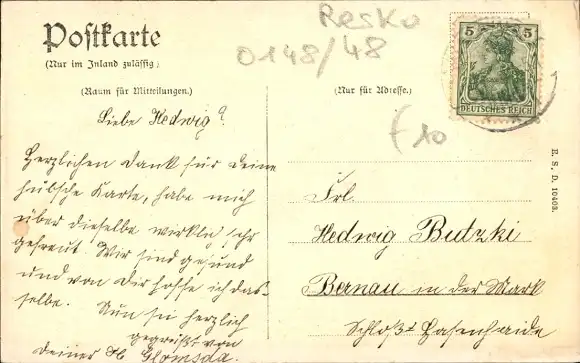 Postkarte
(Nur im Inland zulässig)
Resko
0148/48
5 5
DEUTSCHES REICH
(Raum für Mitteilungen.)
(Nur für Adresse.)
10
Liebe Hedwig!
Herzlichen Dank für deine
hübsche Karte, habe mich
über dieselbe wirklich sehr
gefreut. Wir sind gesund
und von Dir hoffe ich das-
selbe. Nun sei herzlich
gegrüßt von
deiner
Frl.
Hedwig Butzki
Bernau in der Mark
Schloß
E. S. D. 10403.